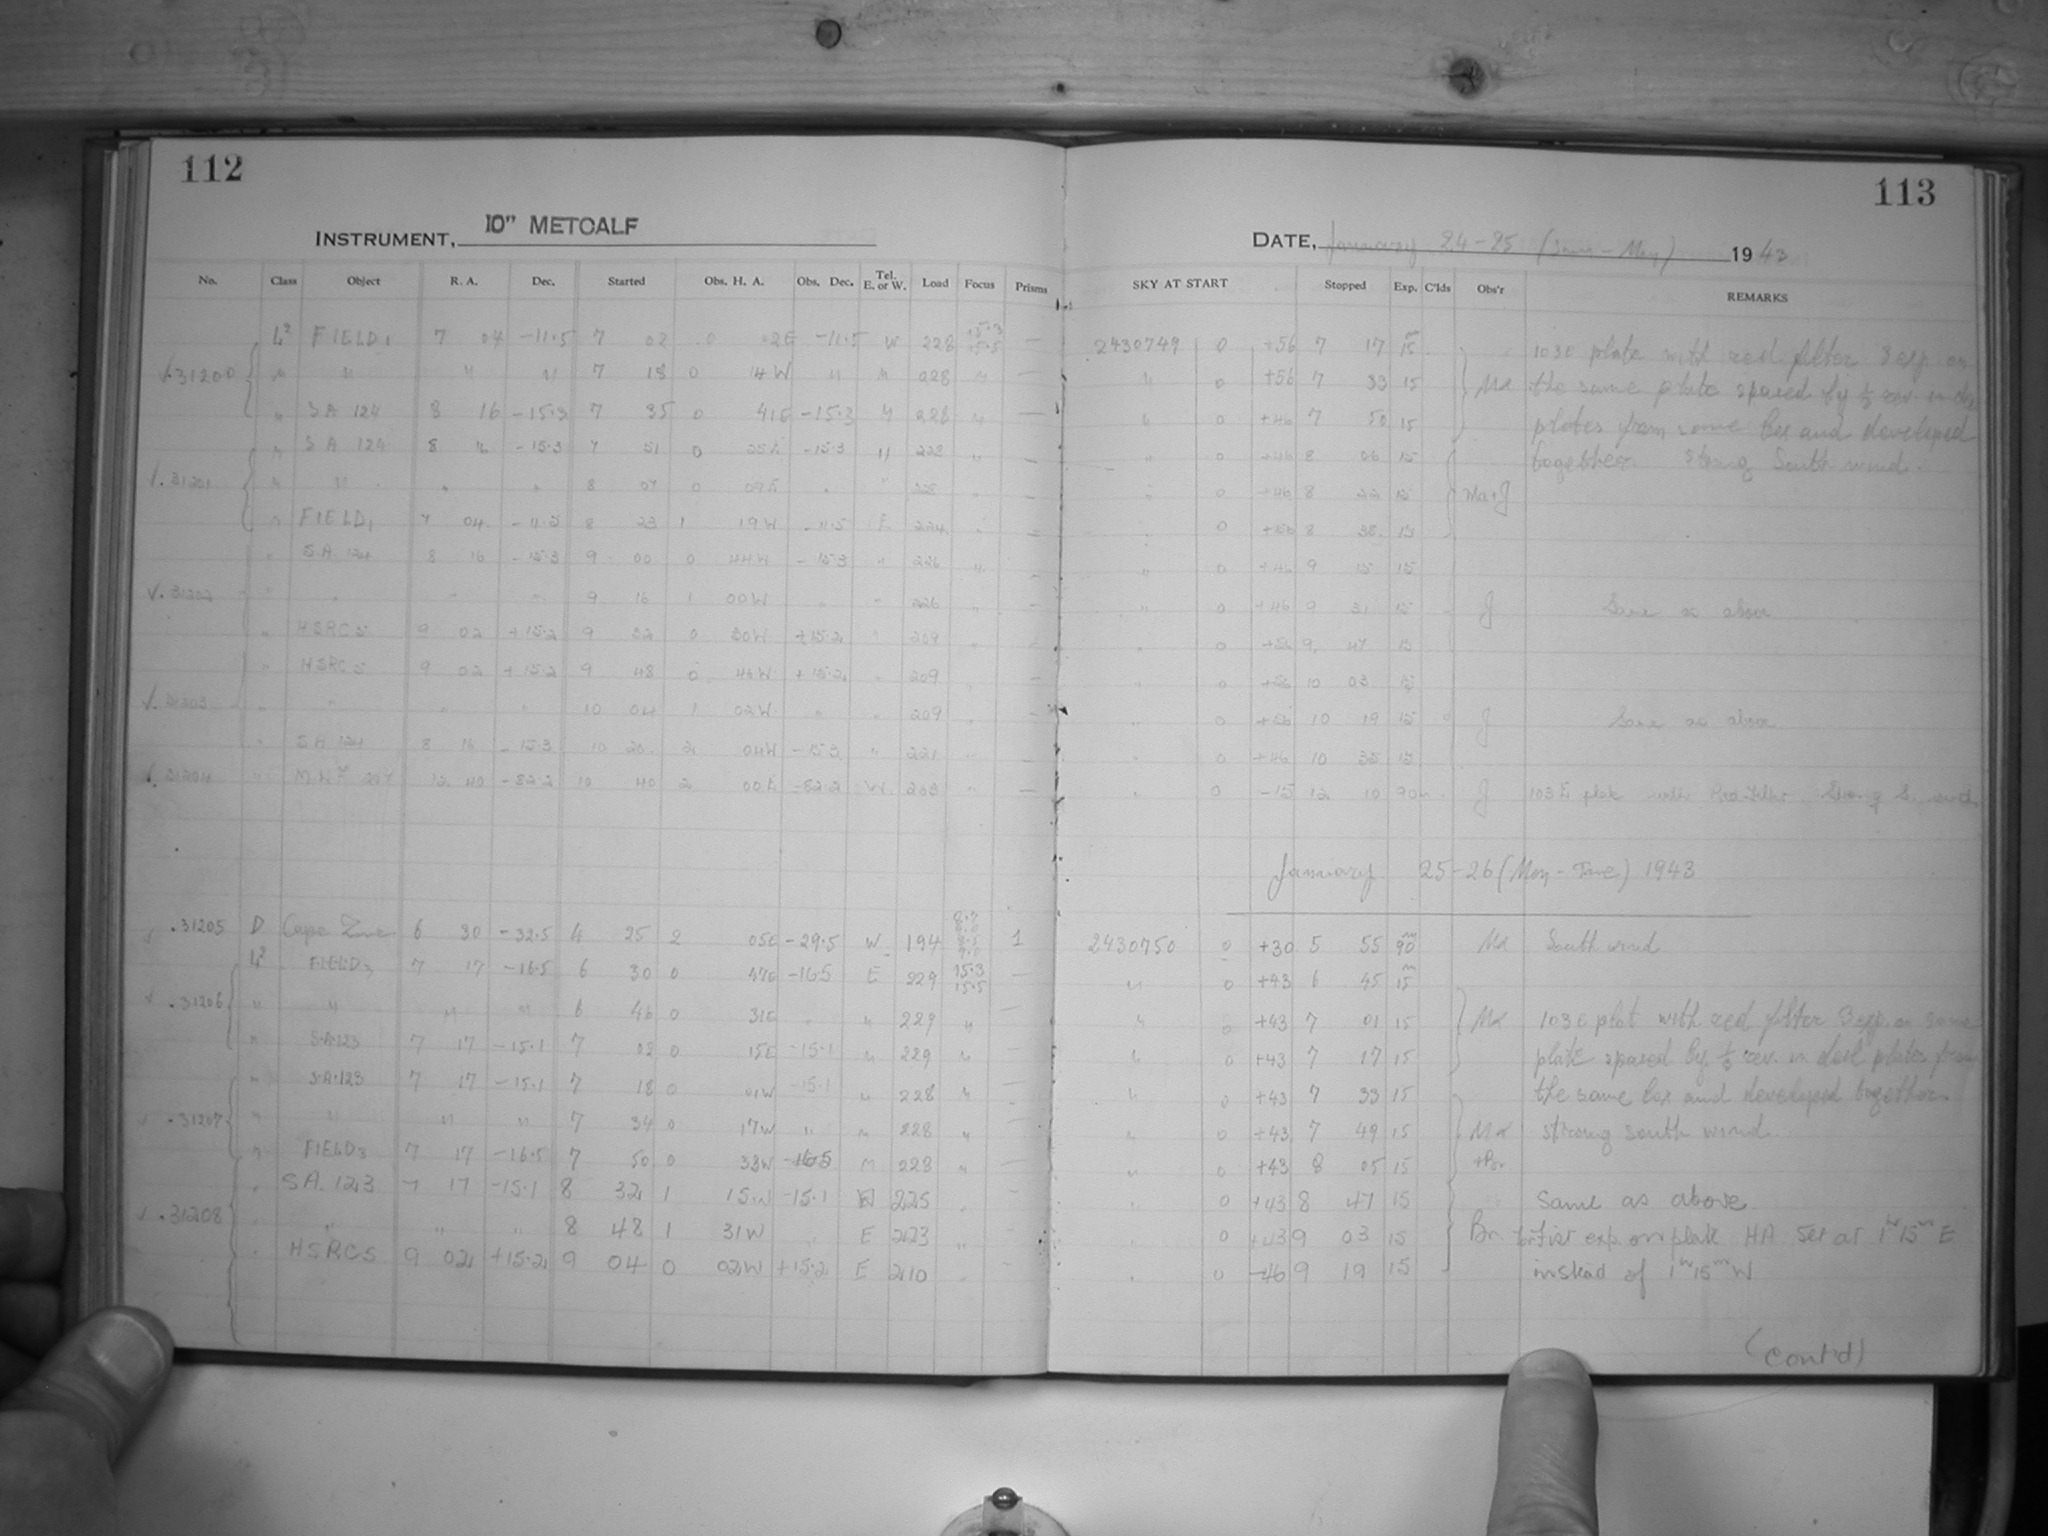 112
INSTRUMENT, 10" METCALF
No. Class Object R. A. Dec. Started Obs. H. A. Obs. Dec. Tel. E. or W. Load Focus Prisms
L² FIELD₁ 7 04 -11.5 7 02 0 02E -11.5 W 228 15.3 15.5 —
31200 " " " " 7 18 0 14W " " 228 " —
" SA 124 8 16 -15.3 7 35 0 41E -15.3 " 226 " —
" SA 124 8 16 -15.3 7 51 0 25E -15.3 " 228 " —
31201 " " " " 8 07 0 09E " " 228 " —
" FIELD₁ 7 04 -11.5 8 23 1 19W -11.5 E 224 " —
" SA 124 8 16 -15.3 9 00 0 44W -15.3 " 226 " —
31202 " " " " 9 16 1 00W " " 226 " —
" HSRC5 9 02 +15.2 9 32 0 30W +15.2 " 209 " —
" HSRC5 9 02 +15.2 9 48 0 46W +15.2 " 209 " —
31203 " " " " 10 04 1 02W " " 209 " —
" SA 124 8 16 -15.3 10 20 2 04W -15.3 " 221 " —
31204 " 12 40 -82.2 10 40 2 00E -82.2 W 203 " —
.31205 D 6 30 -32.5 4 25 2 05E -29.5 W 194 1
L² FIELD₃ 7 17 -16.5 6 30 0 47E -16.5 E 229 15.3 15.5 —
.31206 " " " " 6 46 0 31E " " 229 " —
" SA.123 7 17 -15.1 7 02 0 15E -15.1 " 229 " —
" SA.123 7 17 -15.1 7 18 0 01W -15.1 " 228 " —
.31207 " " " " 7 34 0 17W " " 228 " —
" FIELD₃ 7 17 -16.5 7 50 0 33W -16.5 " 228 " —
" SA.123 7 17 -15.1 8 32 1 15W -15.1 E 225 " —
.31208 " " " " 8 48 1 31W " E 223 " —
" HSRC5 9 02 +15.2 9 04 0 02W +15.2 E 210 " —
113
DATE, January 24-25 (Sun-Mon) 1943
SKY AT START Stopped Exp. C'lds Obs'r REMARKS
2430749 0 +56 7 17 15ᵐ 103E plate with red filter 3 exp on
" 0 +56 7 33 15 Ma the same plate spaced by ½ rev. in
" 0 +46 7 50 15 plates from same box and developed
" 0 +46 8 06 15 together. Strong South wind.
" 0 +46 8 22 15 Ma+J
" 0 +56 8 38 15
" 0 +46 9 15 15
" 0 +46 9 31 15 J Same as above
" 0 +56 9 47 15
" 0 +56 10 03 15
" 0 +56 10 19 15 J Same as above
" 0 +46 10 35 15
" 0 -15 12 10 90m J 103E plate with Red Filter. Strong S. wind
January 25-26 (Mon-Tue) 1943
2430750 0 +30 5 55 90ᵐ Ma South wind
" 0 +43 6 45 15ᵐ
" 0 +43 7 01 15 Ma 103E plat with red filter 3 exp. on same
" 0 +43 7 17 15 plate spaced by ½ rev. in decl plates from
" 0 +43 7 33 15 the same box and developed together.
" 0 +43 7 49 15 Ma strong south wind.
" 0 +43 8 05 15
" 0 +43 8 47 15 Same as above
" 0 +43 9 03 15 Bn First exp. on plate HA Set at 1ʰ15ᵐ E
" 0 -46 9 19 15 instead of 1ʰ15ᵐ W
(cont'd)